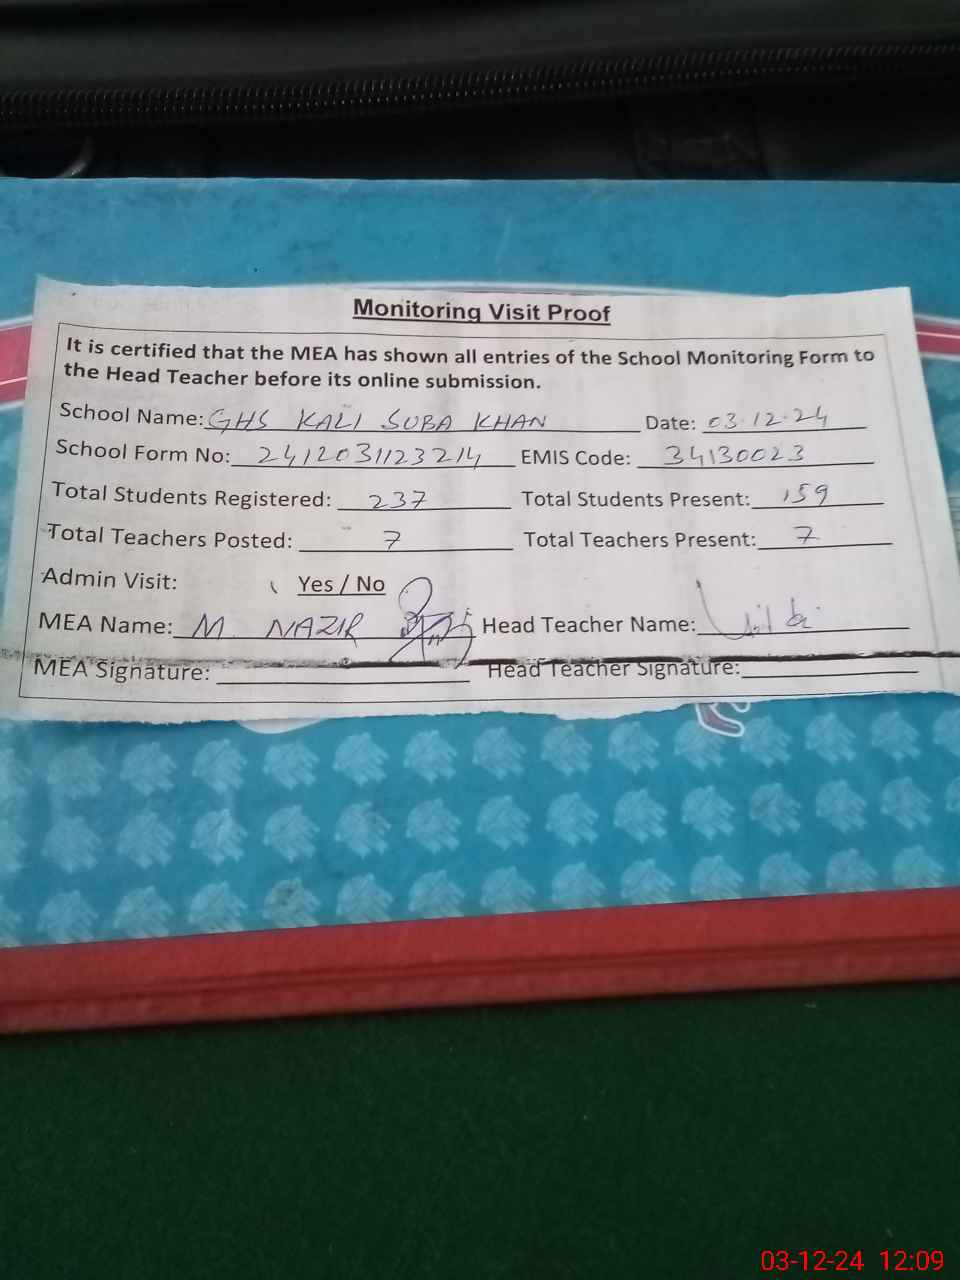 Monitoring Visit Proof
It is certified that the MEA has shown all entries of the School Monitoring Form to
the Head Teacher before its online submission.
School Name: GHS KALI SUBA KHAN Date: 03.12.24
School Form No: 2412031123214 EMIS Code: 34130023
Total Students Registered: 237 Total Students Present: 159
Total Teachers Posted: 7 Total Teachers Present: 7
Admin Visit: Yes / No
MEA Name: M NAZIR Head Teacher Name:
MEA Signature: Head Teacher Signature:
03-12-24 12:09